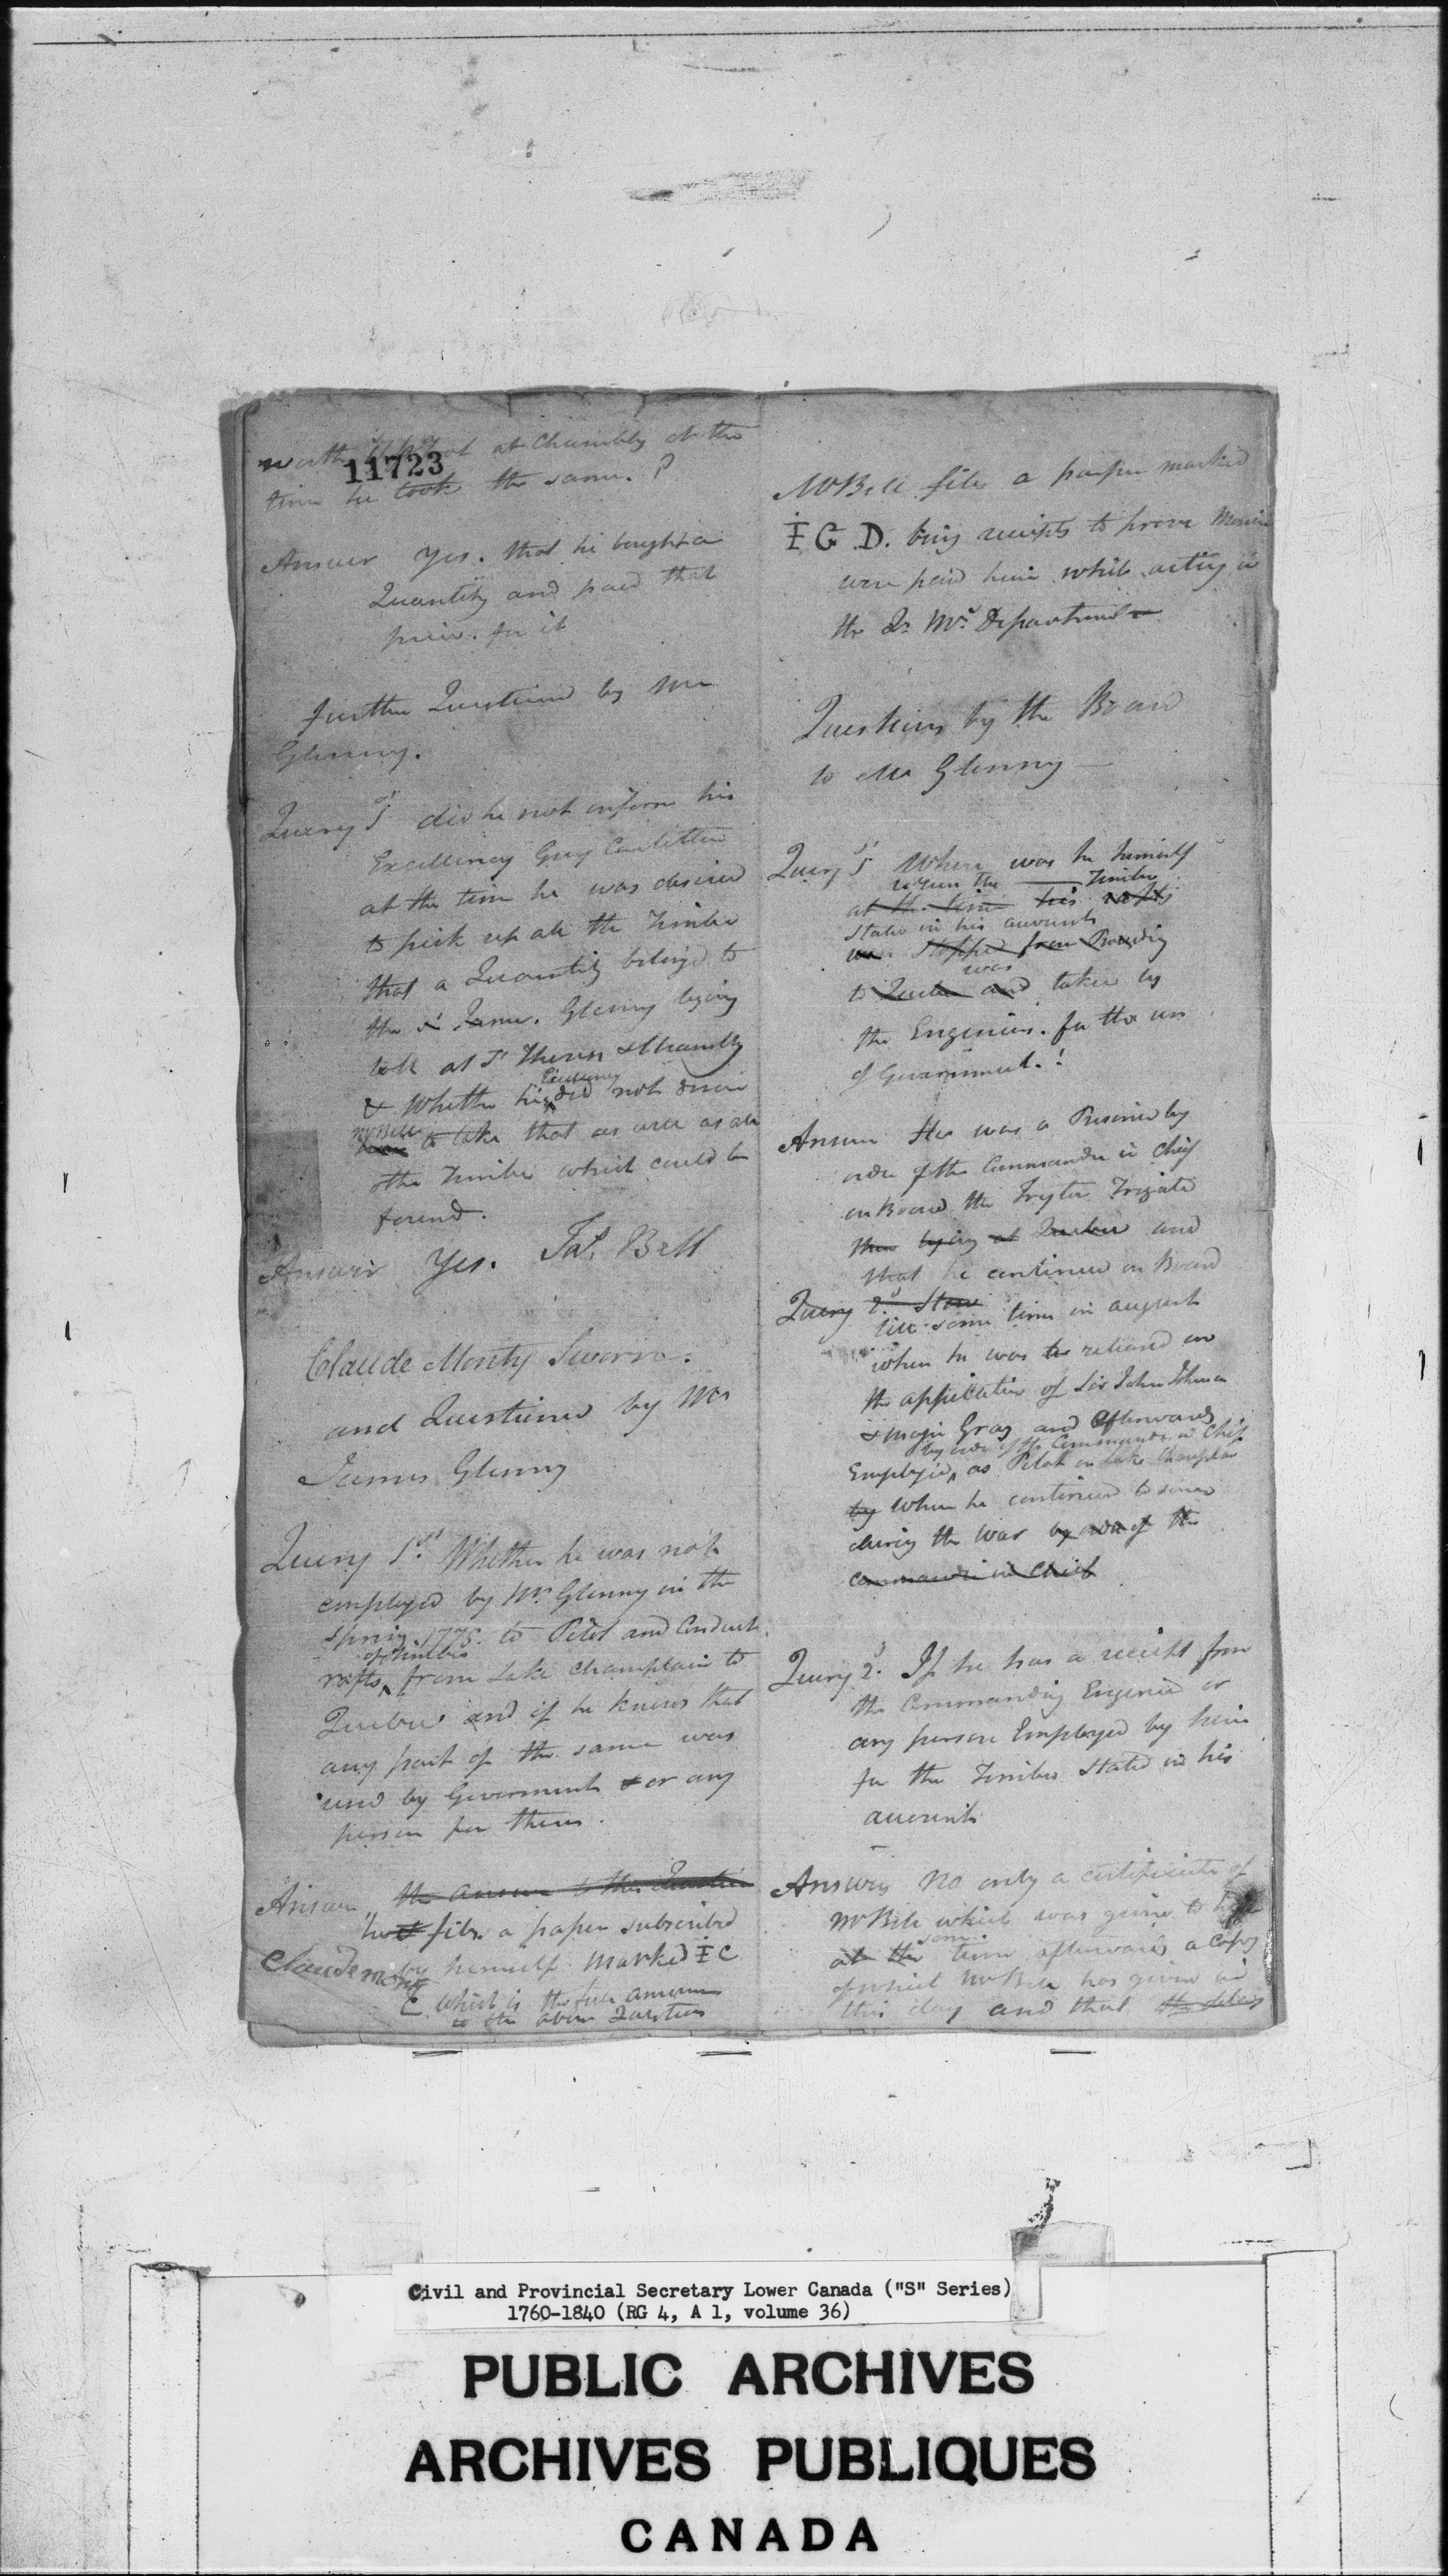 worth at Chambly at the
11723
time he took the same. ?
Answer Yes. that he bought a
Quantity and paid that
price. for it
further Questioned by Mr
Glenny.
Query 1st did he not inform his
Excellency Guy Carlitton
at the time he was desired
to pick up all the Timber
that a Quantity belong'd to
the sd James. Glenny lying
both at St Theress & Chambly
Excellency
& whether his did not desire
Mr Bell
to take that as well as all
other Timber which could be
found.
Answer Yes. Jas. Bell
Claude Monty Sworn.
and Questioned by Mr
James Glenny
Query 1st. Whether he was not
employed by Mr Glenny in the
Spring 1778. to Pilot and Conduct
of Timber
rafts from Lake Champlain to
Quebec and if he knows that
any part of the same was
used by Government & or any
person for them.
Answer the answer to this Question
files a paper subscribed
by himself marked I C
Claude Monty
E which is the full answer
to the above Question
Mr Bell files a paper marked
I G D. being receipts to prove Monies
were paid him while acting in
the Qr. Mrs. Department
Questions by the Board
to Mr Glenny
Query 1st Where was he himself
when the Timber
at the time his rafts
Stated in his accounts
was stopped from Proceeding
was
to Quebec and taken by
the Engineers. for the use
of Government. !
Answer He was a Prisoner by
order of the Commander in Chief
on Board the Tryton Frigate
then lying at Quebec and
that he continued on Board
Query 2d
till some time in august
when he was released on
the application of Sir John Johnson
& Major Gray and Afterwards
by order of the Commander in Chief
Employed as Pilot on Lake Champlain
by when he continued to serve
during the War by order of the
commander in Chief
Query 2d. If he has a receipt from
the Commanding Engineer or
any person Employed by him
for the Timber Stated in his
accounts
Answer No only a certificate of
Mr Bell which was given to
some
at the time afterwards a Copy
of which Mr Bell has given in
this day and that the
Civil and Provincial Secretary Lower Canada ("S" Series)
1760-1840 (RG 4, A 1, volume 36)
PUBLIC ARCHIVES
ARCHIVES PUBLIQUES
CANADA